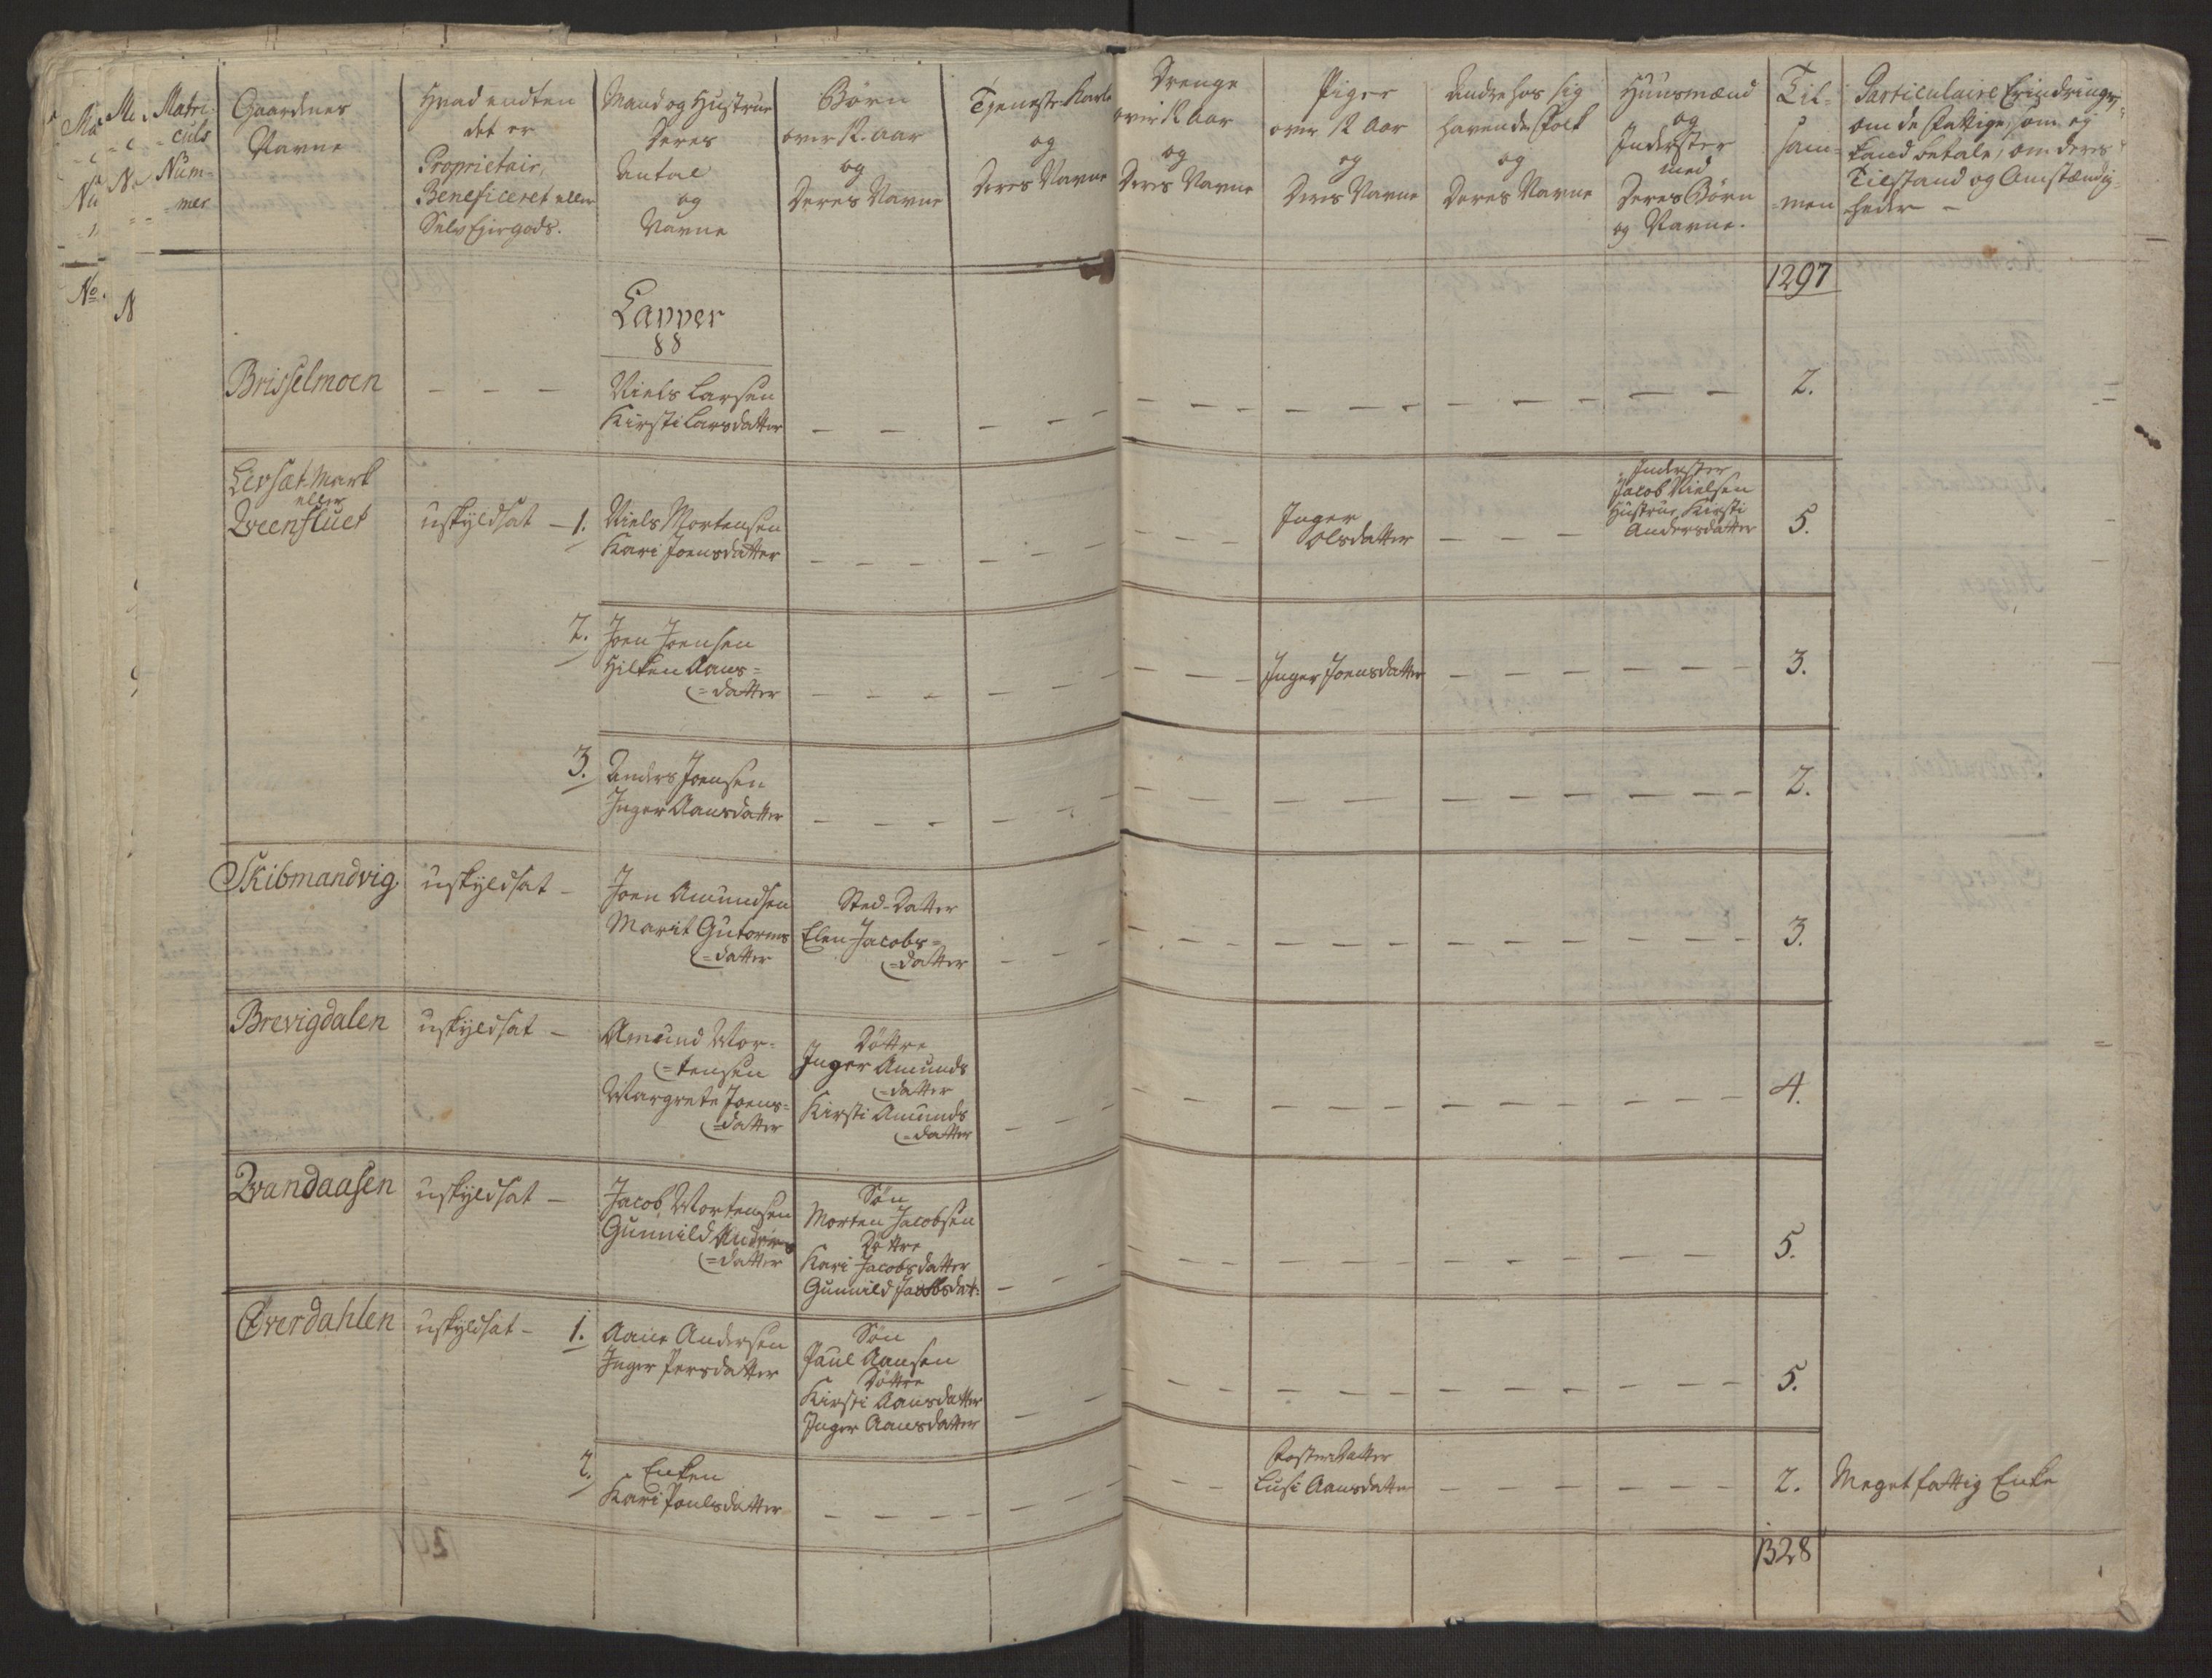 Matri-
culs
Num-
mer
Gaardenes
Navne
Hvad endten
det er
Proprietair,
Beneficeret eller
Selv Ejergods.
Mand og Hustrue
Deres
Antal
og
Navne
Børn
over 12. aar
og
Deres Navne
Tjeneste-Karle
og
Deres Navne
Drenge
over 12 Aar
og
Deres Navne
Piger
over 12 Aar
og
Deres Navne
Andre hos sig
havende Folk
og
Deres Navne
Huusmænd
og
Inderster
med
Deres Børn
og Navne.
Til-
sam-
men
Particulaire Erindringer,
om de fattige, som ej
kand betale, om deres
Tilstand og Omstændig-
heder -
No.
N
1297
Lapper
Brisselmoen
- - -
Niels Larsen
Kirsti Larsdatter
2.
Levsat-Mark
eller
Qveenfluet
uskyldsat - 1.
Niels Mortensen
Kari Joensdatter
Inger
Olsdatter
Inderster
Jacob Nielsen
Hustrue Kirsti
Andersdatter
5.
2.
Joen Joensen
Hilken Aans=
=datter
Inger Joensdatter
3.
3.
Anders Joensen
Inger Aansdatter
2.
Skibmandvig
uskyldsat -
Joen Amundsen
Marit Gutorms
=datter
Sted-Datter
Elen Jacobs=
=datter
3.
Brevigdalen
uskyldsat -
Amund Mor-
=tensen
Margrete Joens=
=datter
Døttre
Inger Amunds
=datter
Kirsti Amunds
=datter
4.
Qvandaasen
uskyldsat -
Jacob Mortensen
Gunnild Anders
=datter
Søn
Morten Jacobsen
Døttre
Kari Jacobsdatter
Gunnild Jacobsdat:
5.
Øverdahlen
uskyldsat - 1.
Aane Andersen
Inger Persdatter
Søn
Paul Aansen
Døttre
Kirsti Aansdatter
Inger Aansdatter
5.
2.
Enken
Kari Poulsdatter
Foster Datter
Lusi Aansdatter
2.
Meget fattig Enke
1328